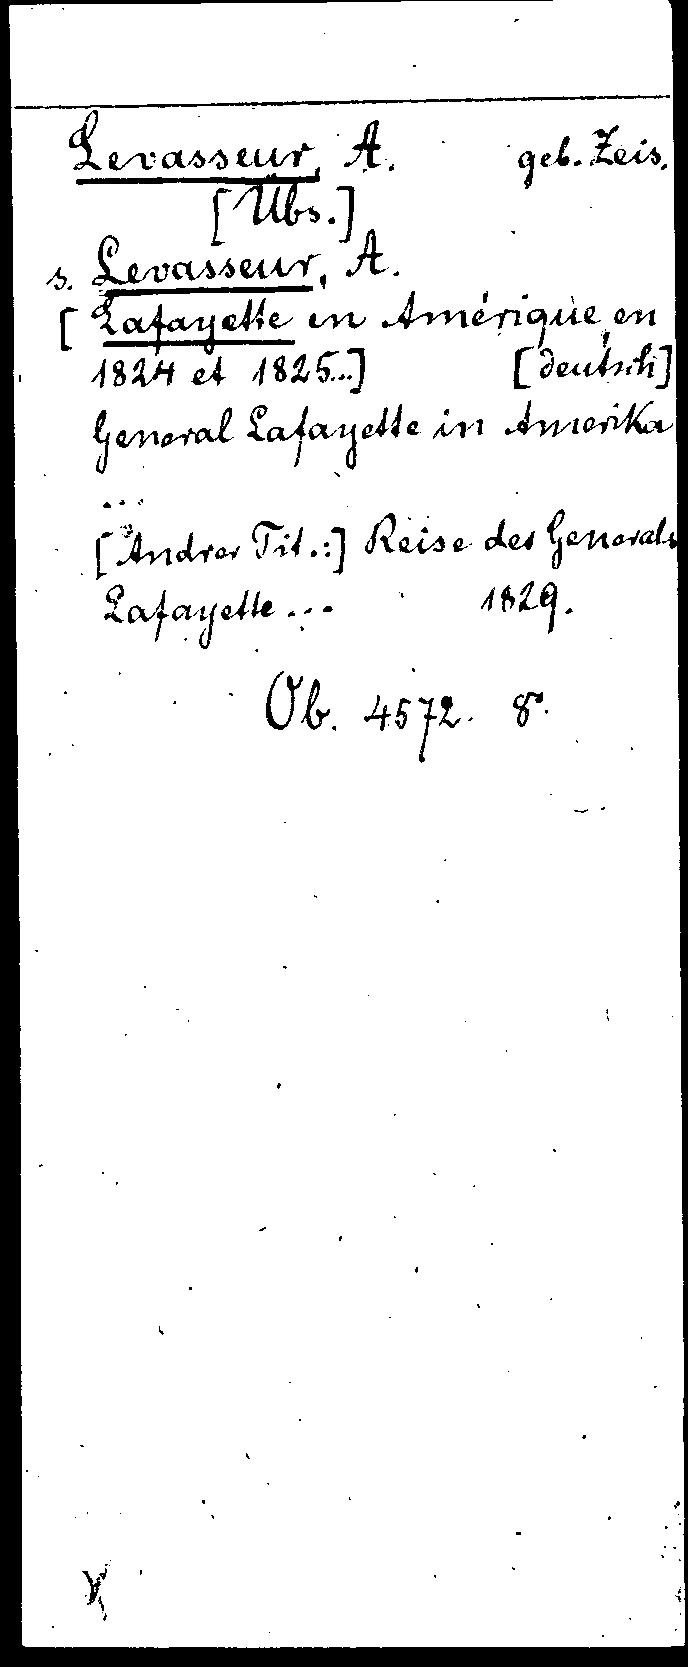 Levasseur, A. geb. Zeis.
[Übs.]
s. Levasseur, A.
[Lafayette en Amérique en
1824 et 1825...] [deutsch]
General Lafayette in Amerika
...
[Andrer Tit.:] Reise des Generals
Lafayette... 1829.
Ob. 4572. 8°.